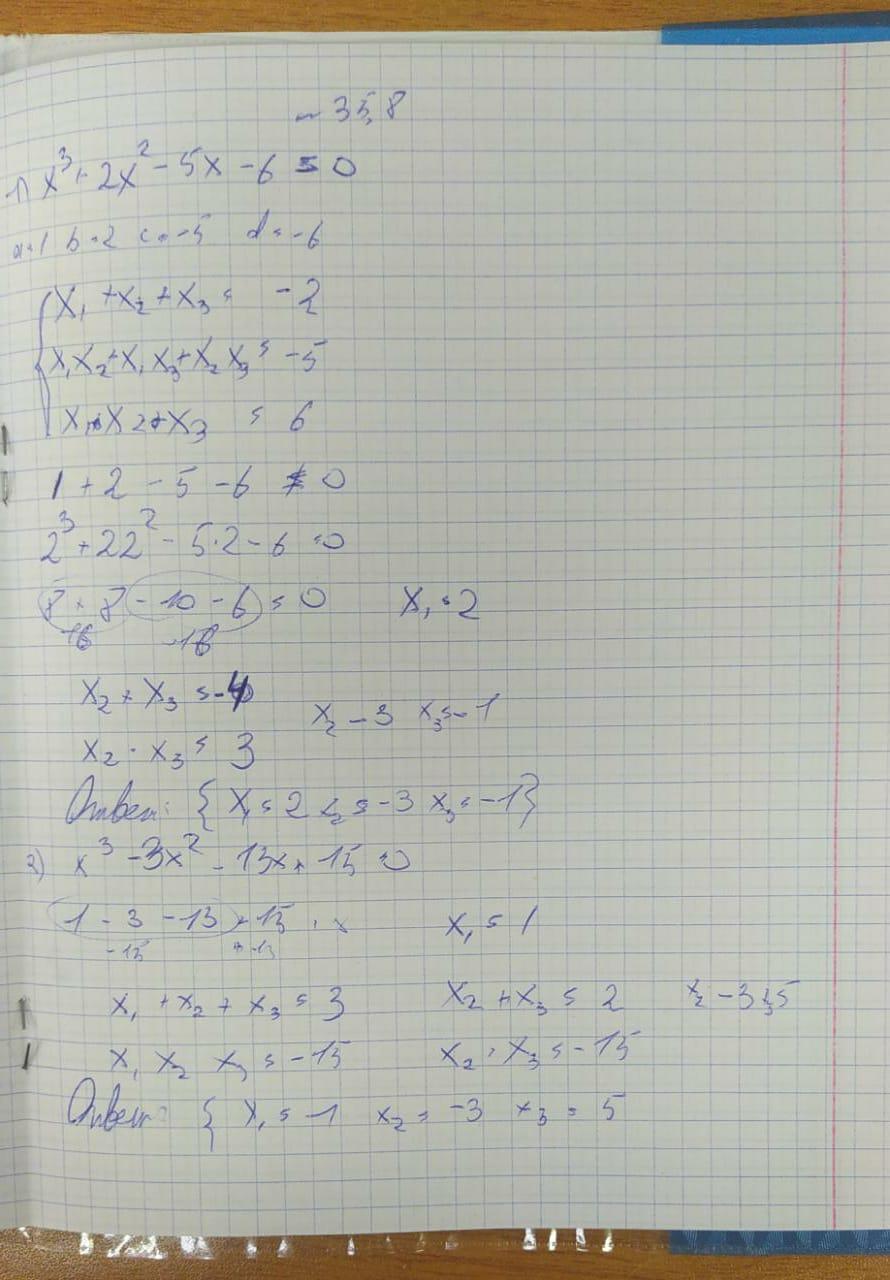 ~ 35,8
1) x³ + 2x² - 5x - 6 = 0
a=1 b=2 c=-5 d=-6
x₁ + x₂ + x₃ = -2
x₁x₂ + x₁x₃ + x₂x₃ = -5
x₁ · x₂ · x₃ = 6
1 + 2 - 5 - 6 ≠ 0
2³ + 2 2² - 5·2 - 6 = 0
8 + 8 - 10 - 6 = 0 x₁ = 2
16 -16
x₂ + x₃ = -4
x₂ - 3 x₃ = -1
x₂ · x₃ = 3
Ответ: { x₁ = 2 x₂ = -3 x₃ = -1 }
2) x³ - 3x² - 13x + 15 = 0
1 - 3 - 13 + 15 x₁ = 1
-15
x₁ + x₂ + x₃ = 3 x₂ + x₃ = 2 x₂ - 3 x₃ 5
x₁ x₂ x₃ = -15 x₂ · x₃ = -15
Ответ: { x₁ = 1 x₂ = -3 x₃ = 5